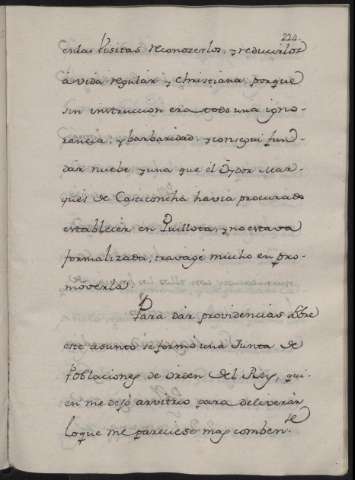 220.
en las Visitas reconozerlos, y reducirlos
á vida regular y christiana, porque
sin instruccion era todo una igno
rancia, y barbaridad, y consegui fun
dar nuebe, y una que el Oydor Mar
qués de Casiconcha havia procurado
establecer en Quillota, y no estava
formalizada, travagé mucho en pro-
moverlas.
Para dar providencias sōbre
este asunto se formó una Junta de
Poblaciones de orden del Rey, qui-
en me dejó arvitrio para deliverar
lo que me pareciese mas comben.te